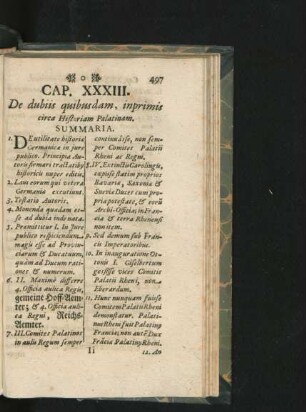 497
CAP. XXXIII.
De dubiis quibusdam, inprimis
circa Historiam Palatinam.
SUMMARIA.
1. DE utilitate historiæ
Germanicæ in jure
publico. Principia Au-
toris firmari tractatibus
historicis nuper editis.
2. Lan eorum qui vetera
Germania
3. Testatio Autoris.
4. Monenda quædam et-
se ad dubia indenata.
5. Præmittitur I. In Jure
publico respiciendum
magis esse ad Provin-
ciarum & Ducatuum,
quàm ad Ducum ratio-
nes & numerum.
6. II. Maximè differre
4. Officia aulica Regis,
gemeine Hoff-Aem-
ter; & 4. Officia auli-
ca Regni, Reichs-
Aemter.
7. III. Comites Palatinos
in aulis Regum semper
continuâsse, non sem-
per Comites Palatii
Rheni ac Regni.
8. IV. Extinctis Carolingis,
expisse statim proprios
Bavariæ, Saxoniæ &
Sueviæ Duces cum pro-
pria potestate, & eorũ
Archi-Officia; in Fran-
cia & terra Rhenensi
non item.
9. Sed demum sub Fran-
cis Imperatoribus.
10. In inauguratione Ot-
tonis I. Giselbertum
gessisse vices Comitis
Palatii Rheni, non
Eberardum.
11. Hunc nunquam fuisse
Comitem Palatii Rheni
demonstratur. Palati-
nus Rheni fuit Palating
Franciæ; non autẽ Dux
Frãciæ Palating Rheni.
Ii
12. An